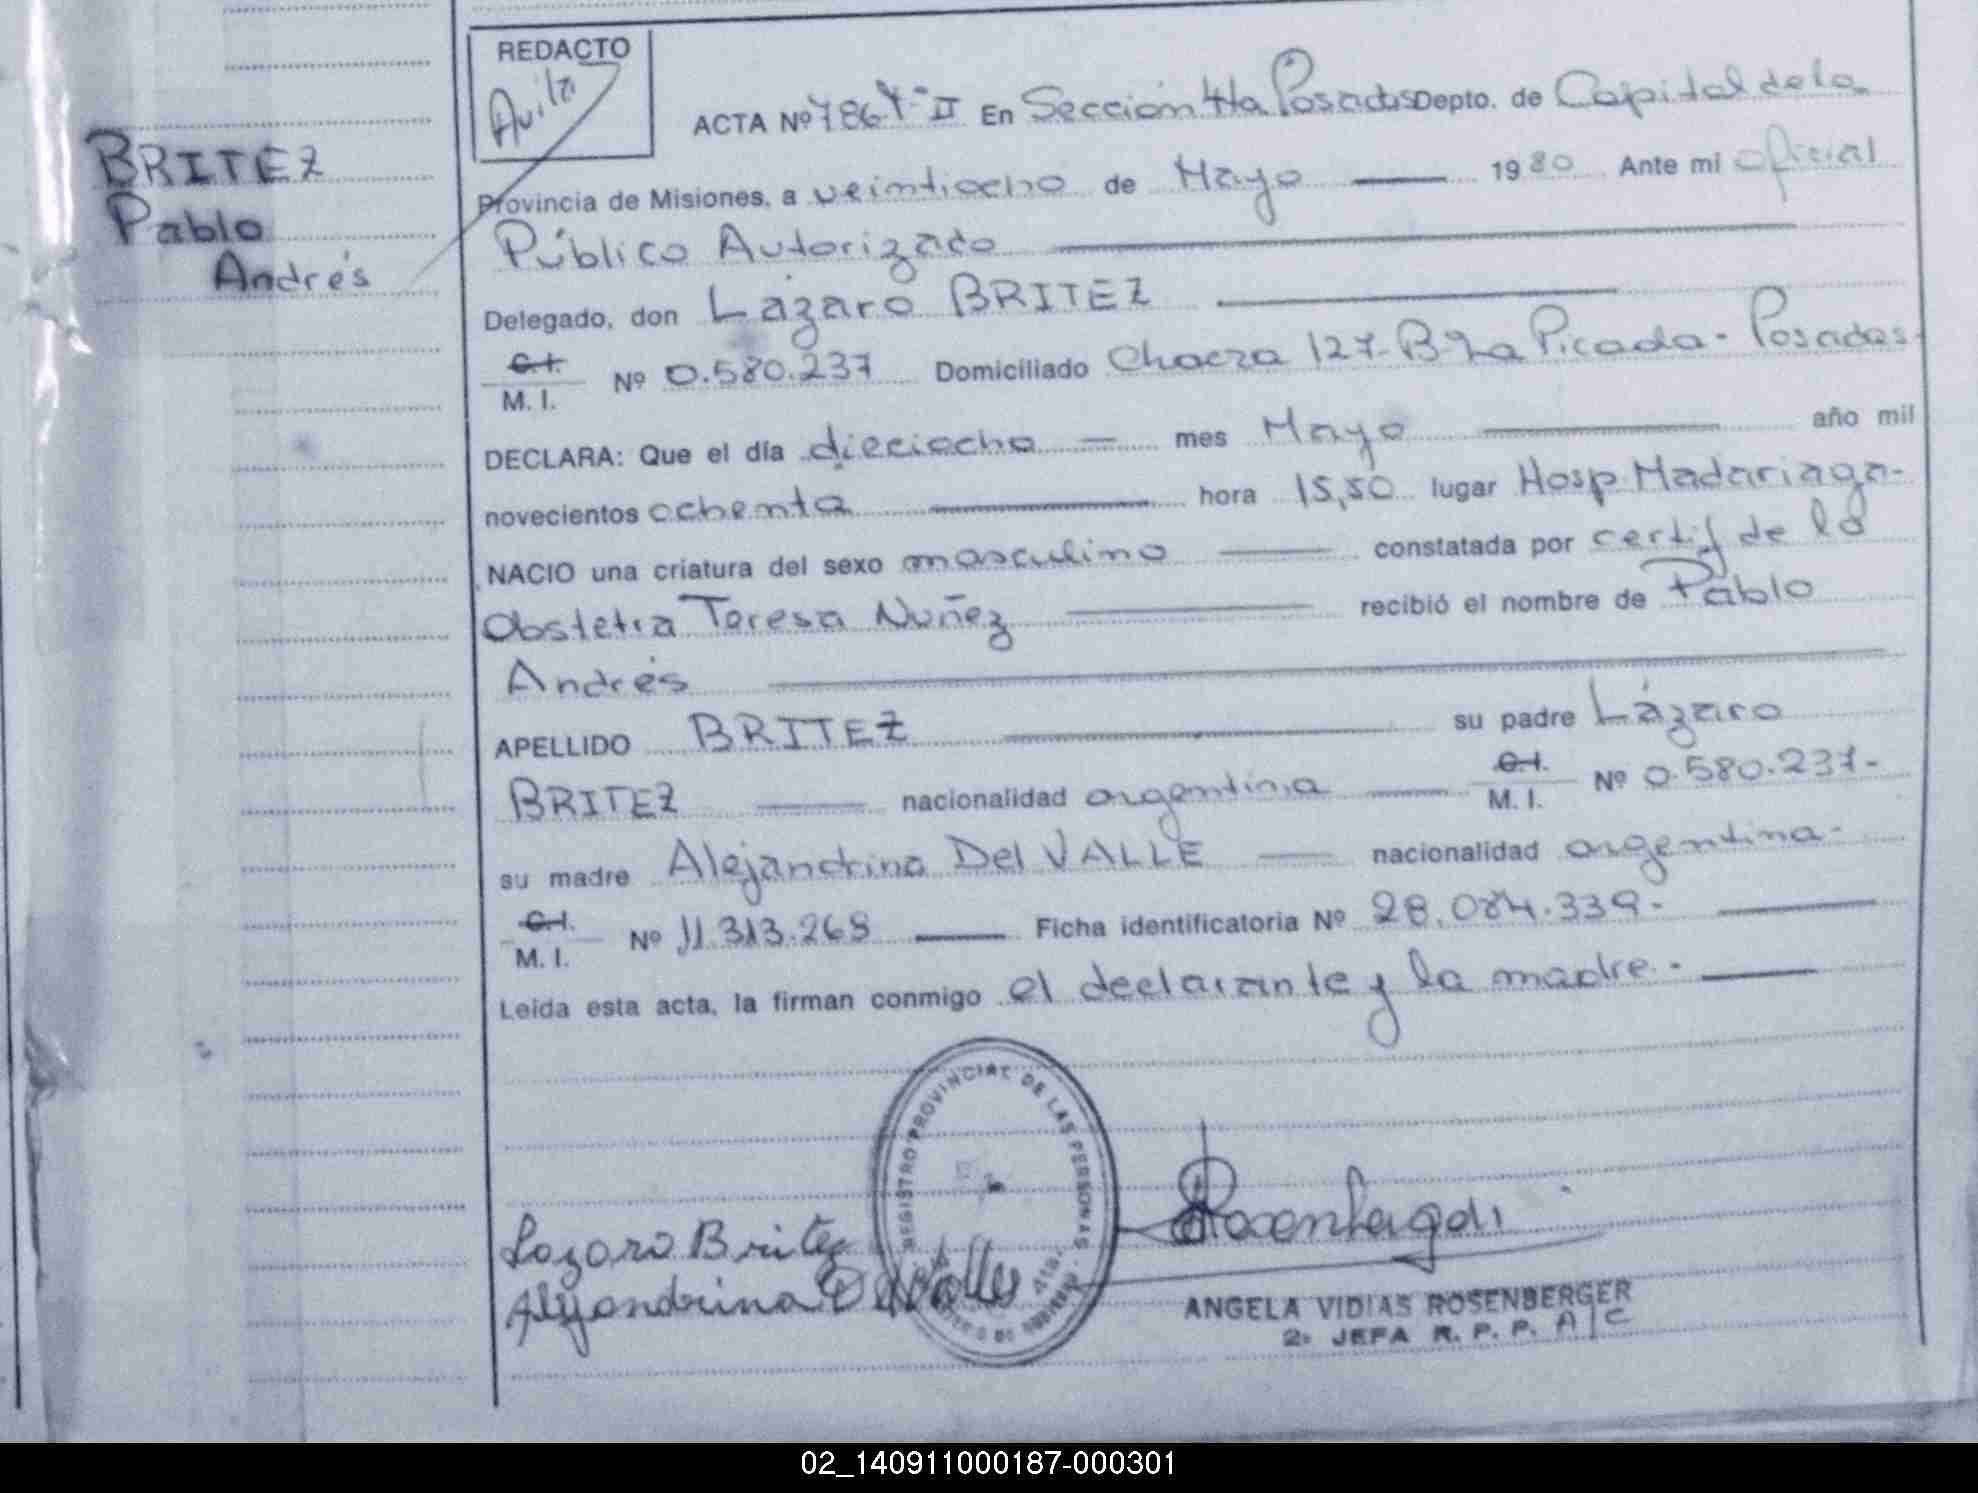 REDACTO
Avila
BRITEZ
Pablo
Andrés
ACTA Nº 786 Tº II En Sección 4ta Posadas Depto. de Capital de la
Provincia de Misiones, a veintiocho de Mayo 1980 Ante mi oficial
Público Autorizado
Delegado, don Lázaro BRITEZ
C.I.
M. I. Nº 0.580.237 Domiciliado Chacra 127-Bº La Picada - Posadas-
DECLARA: Que el día dieciocho mes Mayo año mil
novecientos ochenta hora 15,50 lugar Hosp. Madariaga-
NACIO una criatura del sexo masculino constatada por certif de la
Obstetra Teresa Nuñez recibió el nombre de Pablo
Andrés
APELLIDO BRITEZ su padre Lázaro
BRITEZ nacionalidad argentina C.I. M. I. Nº 0.580.237-
su madre Alejandrina Del VALLE nacionalidad argentina-
C.I.
M. I. Nº 11.313.268 Ficha identificatoria Nº 28.084.339-
Leida esta acta, la firman conmigo el declarante y la madre.-
REGISTRO PROVINCIAL DE LAS PERSONAS
Lazaro Britez
Alejandrina Del Valle
ANGELA VIDIAS ROSENBERGER
2º JEFA R. P. P. A/C
02_140911000187-000301